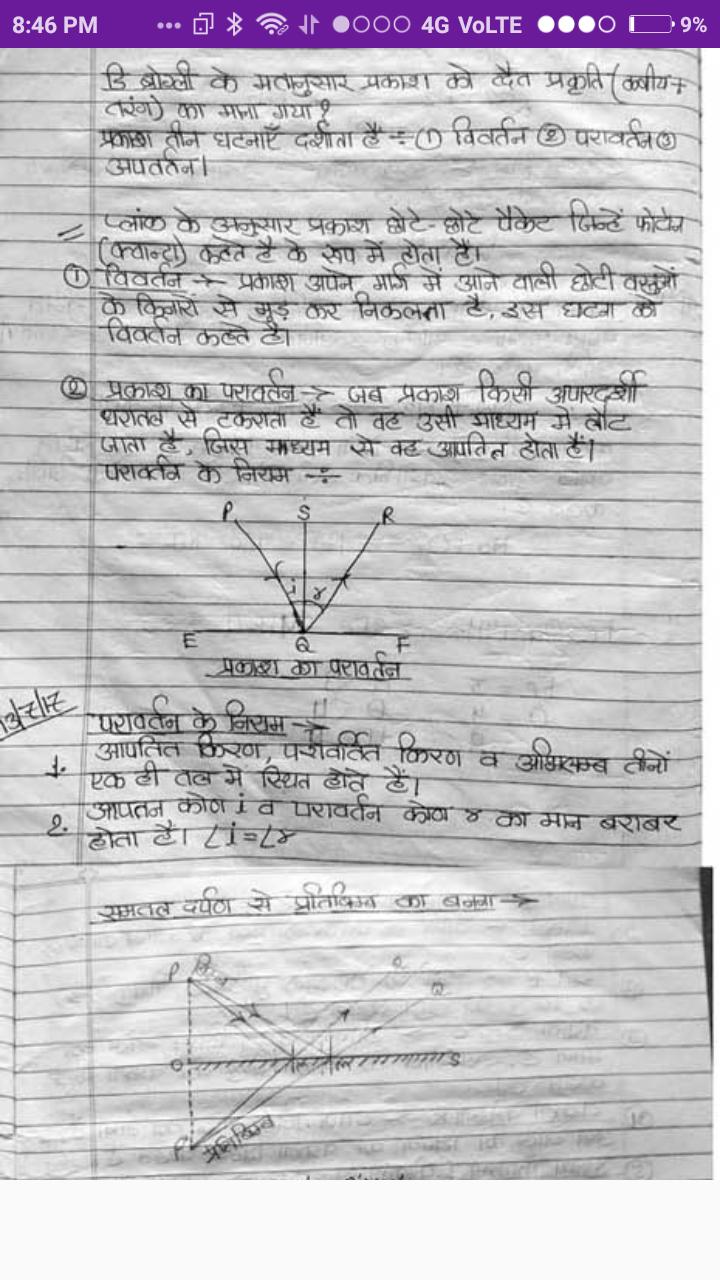 8:46 PM ... 4G VoLTE 9%
डि ब्रोग्ली के मतानुसार प्रकाश को द्वैत प्रकृति (कणीय +
तरंग) का माना गया?
प्रकाश तीन घटनाएँ दर्शाता है ÷ ① विवर्तन ② परावर्तन ③
अपवर्तन।
= प्लांक के अनुसार प्रकाश छोटे-छोटे पैकेट जिन्हें फोटोन
(क्वान्टा) कहते है के रूप में होता है।
① विवर्तन → प्रकाश अपने मार्ग में आने वाली छोटी वस्तुओं
के किनारों से मुड़ कर निकलता है, इस घटना को
विवर्तन कहते है।
② प्रकाश का परावर्तन → जब प्रकाश किसी अपारदर्शी
धरातल से टकराता है तो वह उसी माध्यम में लौट
जाता है, जिस माध्यम से वह आपतित होता हैं।
परावर्तन के नियम ÷
P S R
i r
E Q F
प्रकाश का परावर्तन
परावर्तन के नियम →
1. आपतित किरण, परावर्तित किरण व अभिलम्ब तीनों
एक ही तल में स्थित होते हैं।
2. आपतन कोण i व परावर्तन कोण r का मान बराबर
होता है। ∠i=∠r
समतल दर्पण से प्रतिबिम्ब का बनना →
P
O S
P' प्रतिबिम्ब